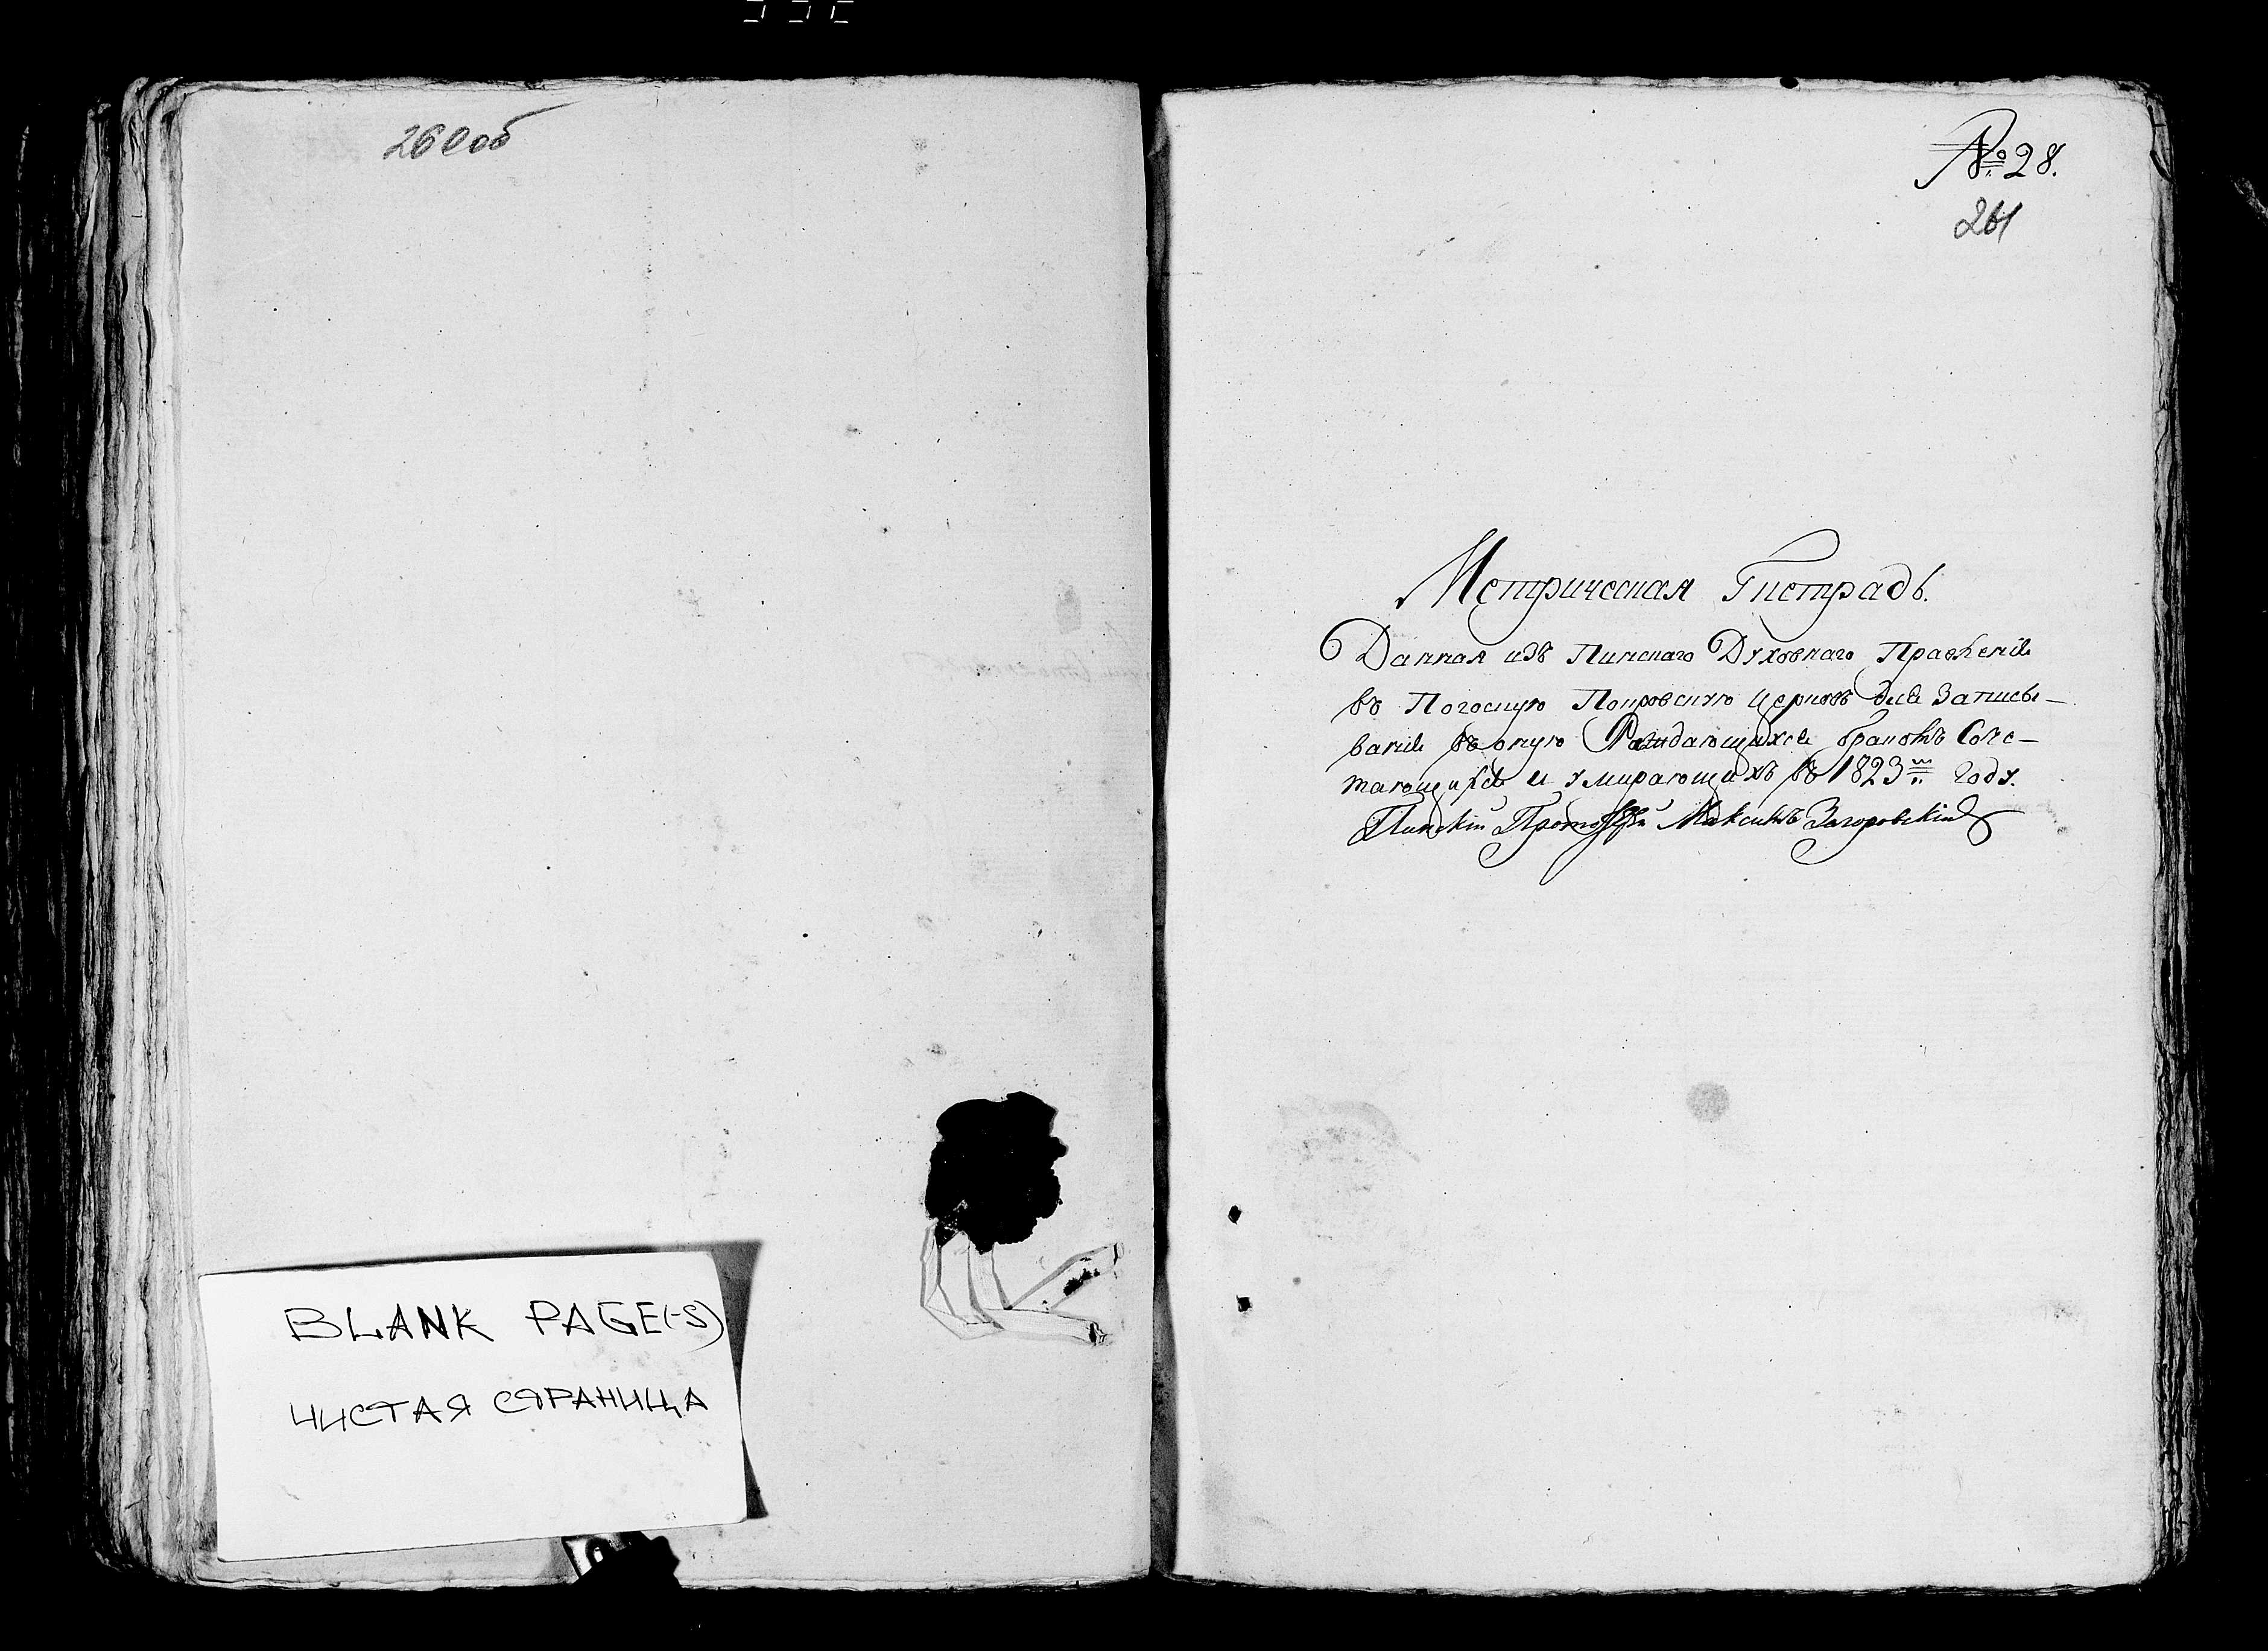 260об
BLANK PAGE(-S)
ЧИСТАЯ СТРАНИЦА
№ 28.
261
Метрическая Тистрадь.
Данная изъ Пинскаго Духовнаго Правленія
въ Погоскую Покровскую Церковь для Записы-
ванія въ оную Раждающихся бракомъ Соче-
тающихся и умирающихъ въ 1823м году.
Пинскій Максимъ Загоровскій